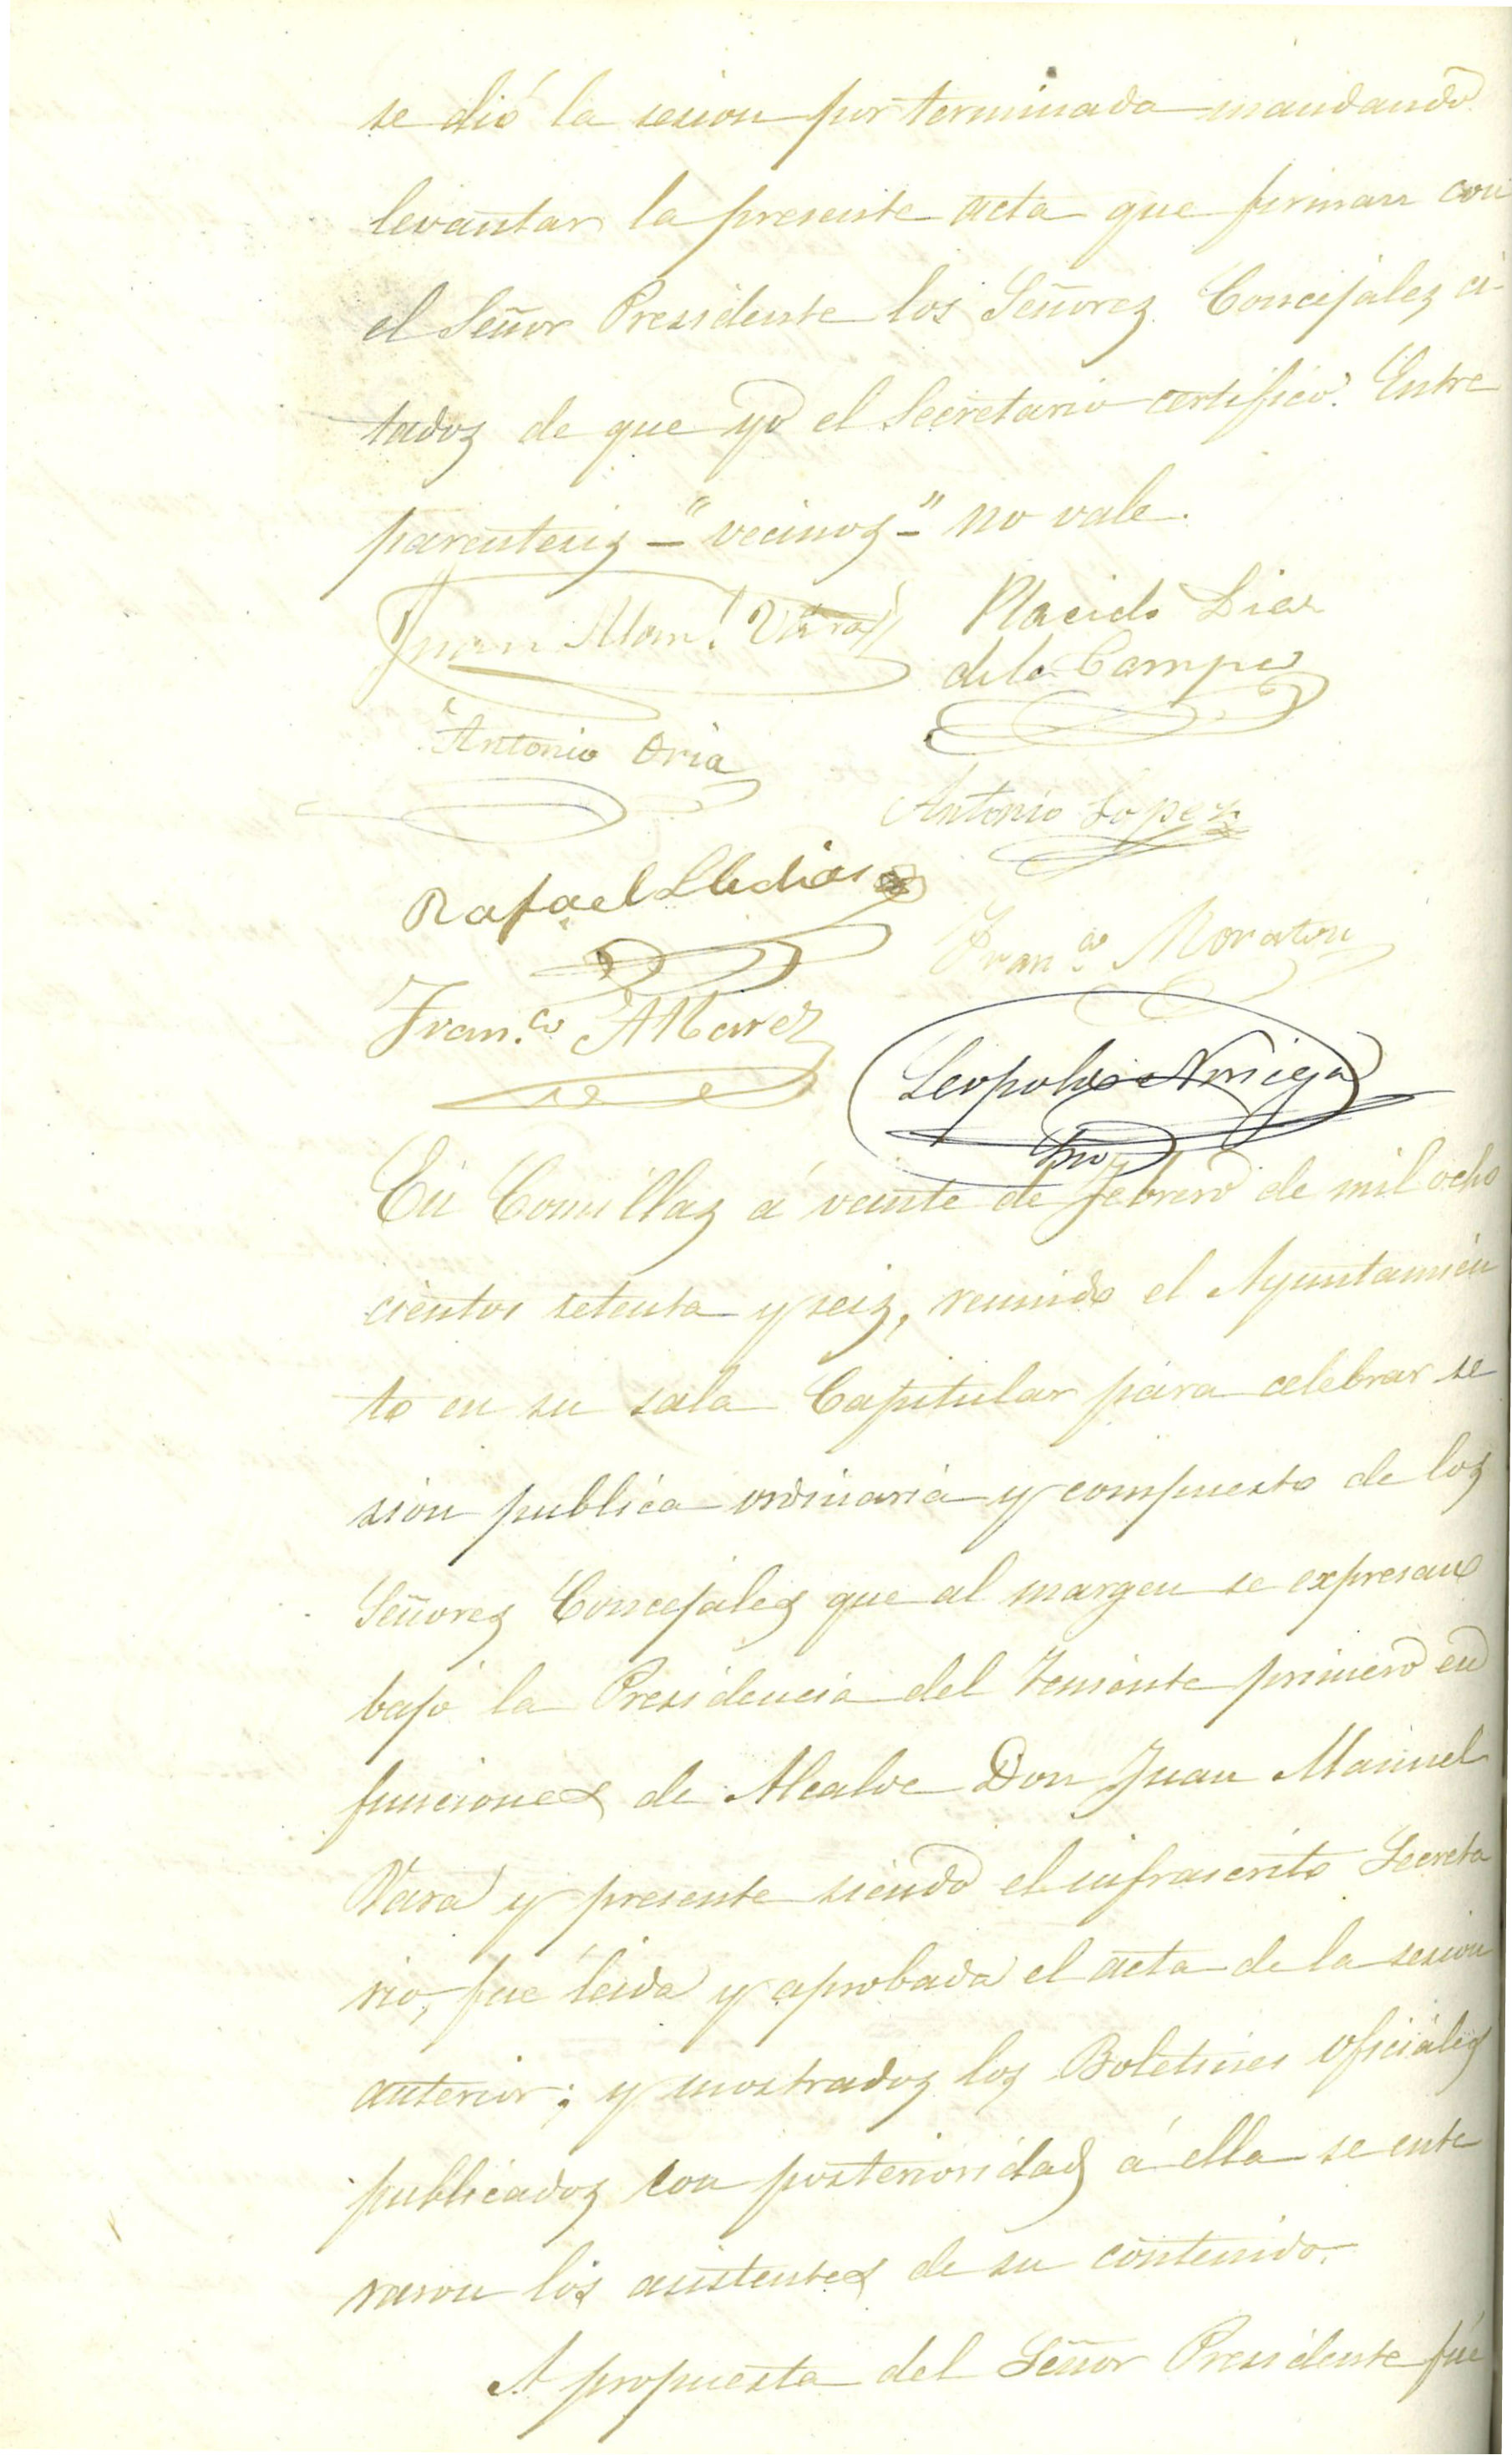 se dió la sesion por terminada mandando
levantar la presente acta que firman con
el Señor Presidente los Señores Concejales ci-
tados de que yo el Secretario certifico. Entre
parentesis - "vecinos" - no vale.
Juan Man.l Vara
Placido Diaz
de la Campa
Antonio Oria
Antonio Lopez
Rafael
Fran.co Moraton
Fran.co Alvarez
Leopoldo Noriega
Srio
En Comillas á veinte de Febrero de mil ocho
cientos setenta y seis, reunido el Ayuntamien
to en su sala Capitular para celebrar se
sion publica ordinaria y compuesto de los
Señores Concejales que al margen se expresan
bajo la Presidencia del Teniente primero en
funciones de Alcalde Don Juan Manuel
Vara y presente siendo el infrascrito Secreta
rio, fue leida y aprobada el acta de la sesion
anterior; y mostrados los Boletines oficiales
publicados con posterioridad á ella se ente
raron los asistentes de su contenido.
A propuesta del Señor Presidente fué